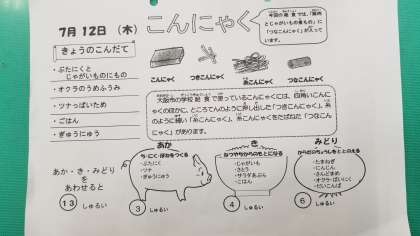 7月12日 (木) こんにゃく
今回の給食では、「豚肉
とじゃがいもの煮もの」に
「つなこんにゃく」が入って
います。
きょうのこんだて
・ぶたにくと
じゃがいものにもの
・オクラのうめふうみ
・ツナっぱいため
・ごはん
・ぎゅうにゅう
こんにゃく
つきこんにゃく
糸こんにゃく
つなこんにゃく
大阪市の学校給食で使っているこんにゃくには、四角いこんに
ゃくのほかに、ところてんのように押し出した「つきこんにゃく」、糸
のように細い「糸こんにゃく」、糸こんにゃくをたばねた「つなこん
にゃく」があります。
あか・き・みどり
を
あわせると
13 しゅるい
あか
ち・にく・ほねをつくる
・ぶたにく
・ツナ
・ぎゅうにゅう
3 しゅるい
き
ねつやちからのもとになる
・じゃがいも
・さとう
・サラダあぶら
・ごはん
4 しゅるい
みどり
からだのちょうしをととのえる
・たまねぎ
・にんじん
・さんどまめ
・オクラ・ばいにく
・だいこんば
6 しゅるい